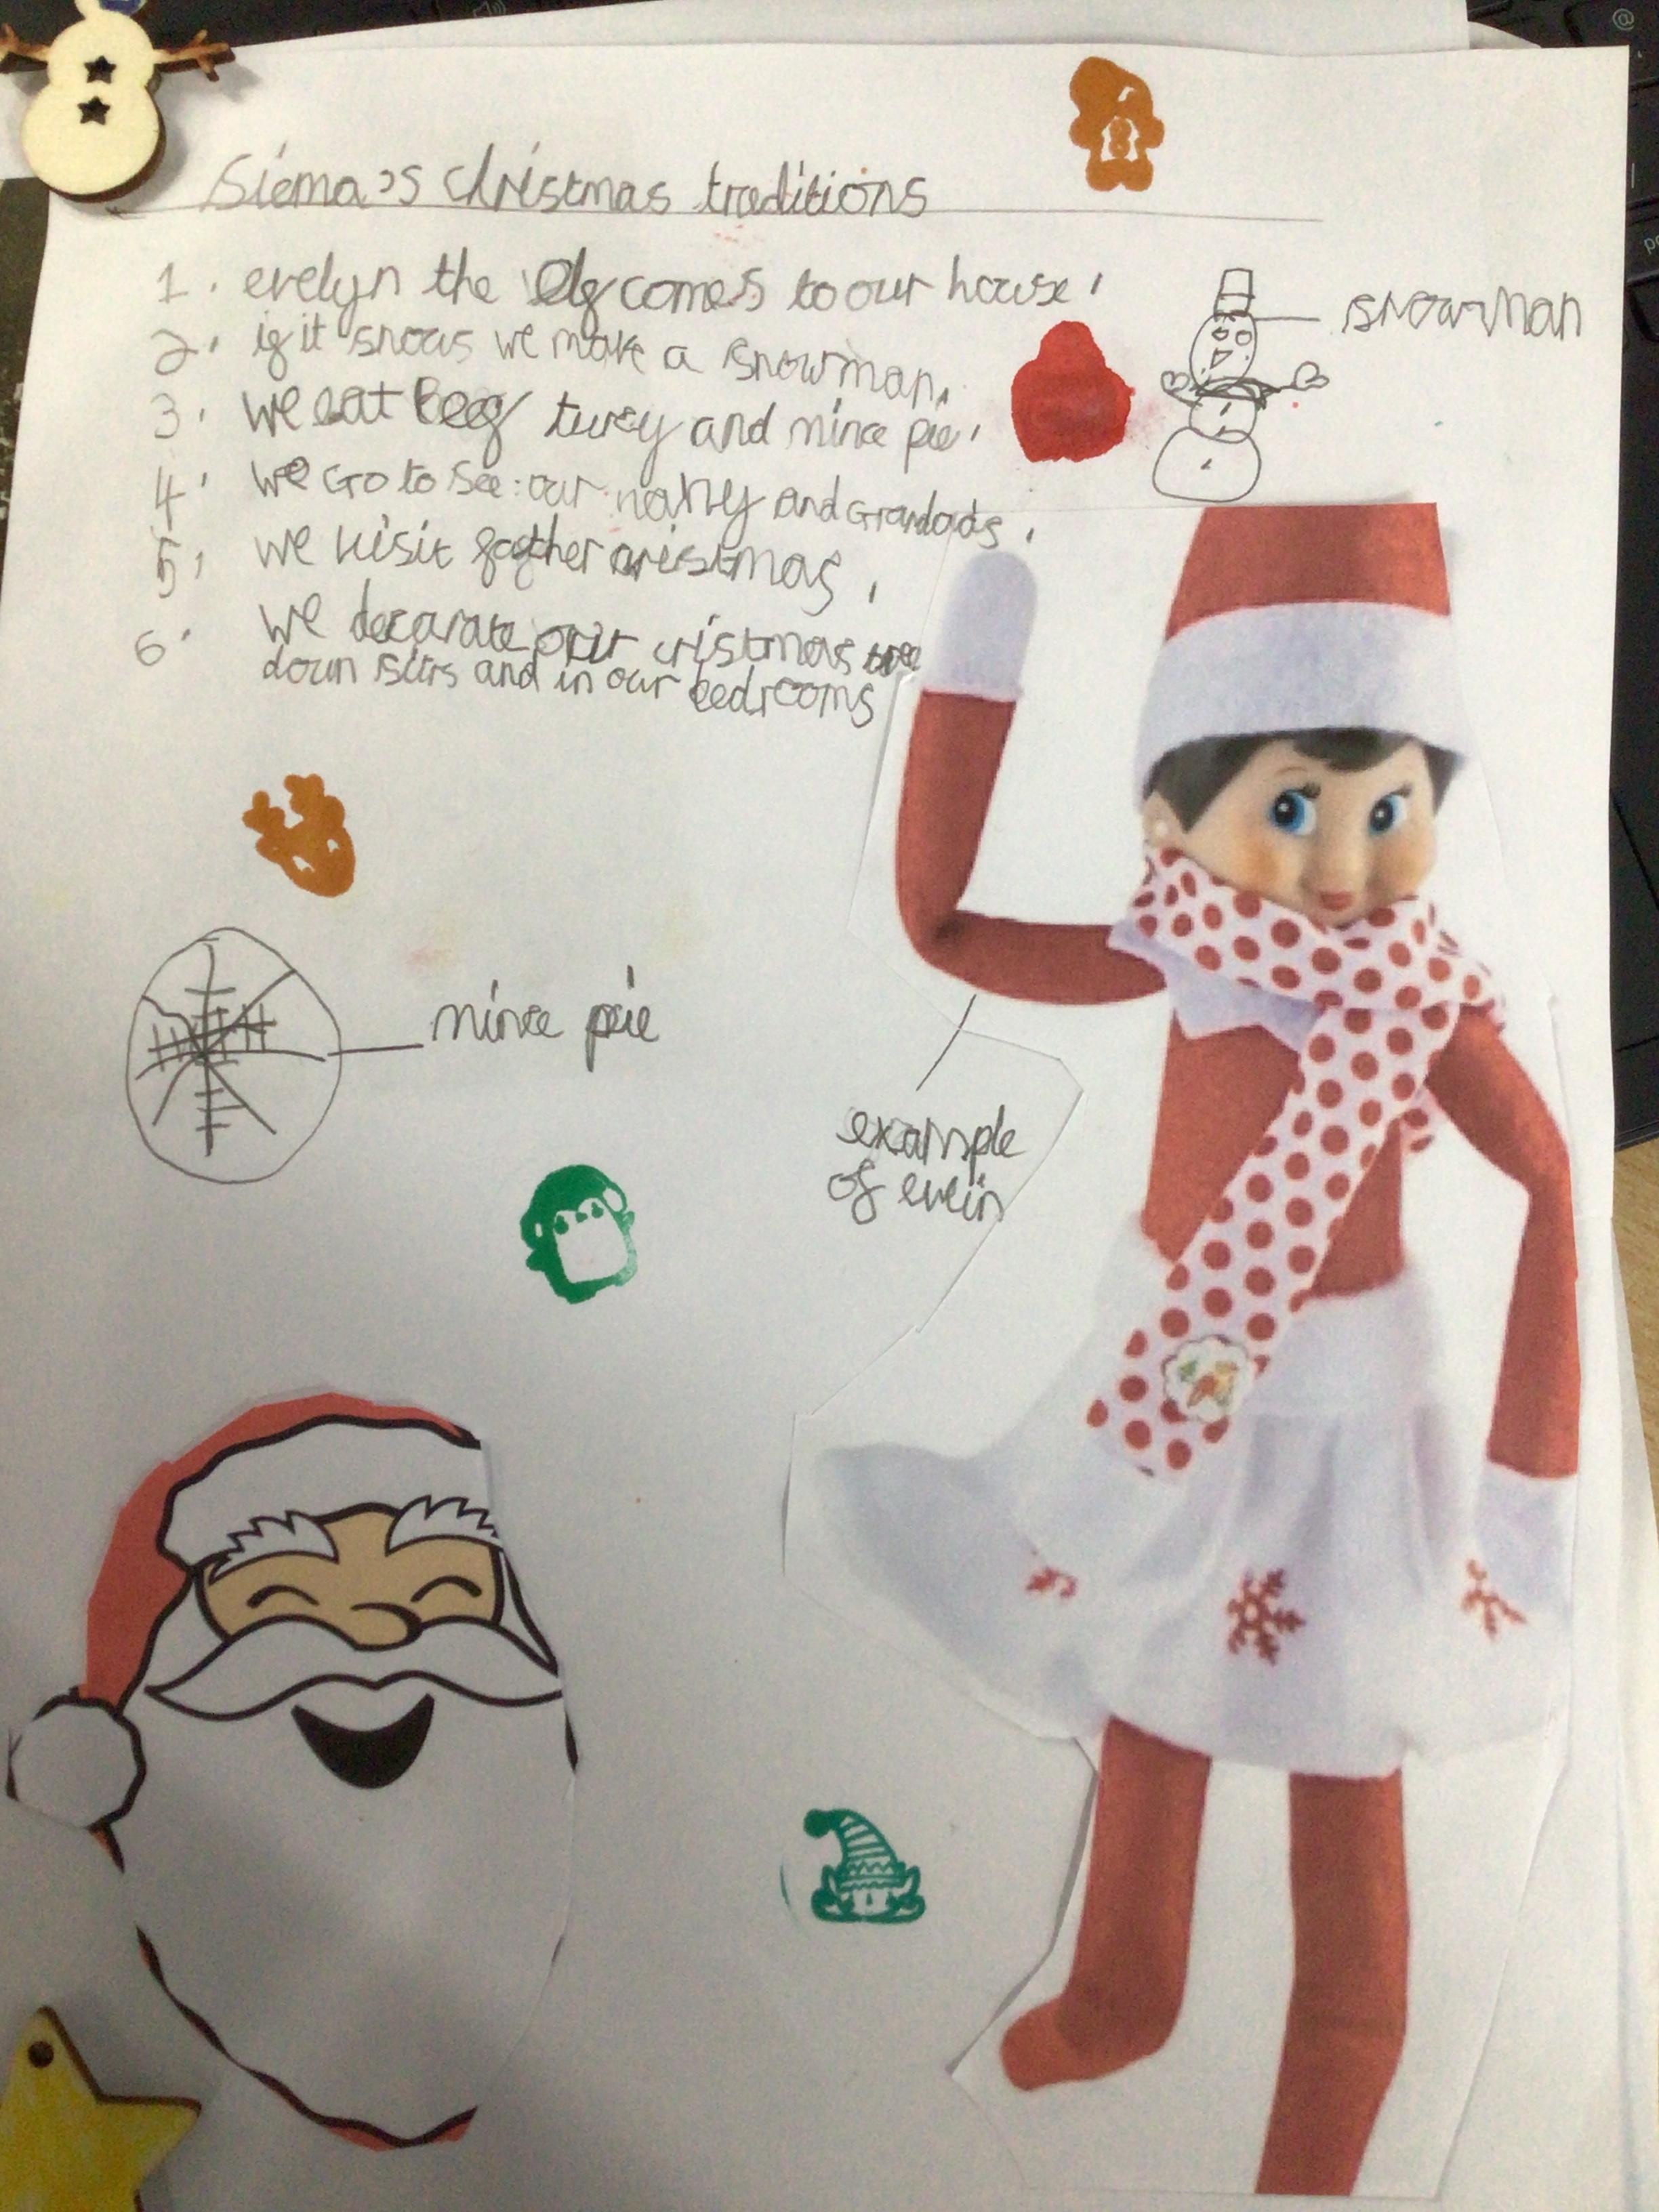 Siema's christmas traditions
1. evelyn the elf comes to our house.
2. if it snows we make a snowman.
3. we eat beef turey and mince pie.
4. we Go to see our nanny and Grandads.
5. we visit father cristmas.
6. we decarate our cristmas tree
down stirs and in our bedrooms
snowman
mince pie
example
of evein